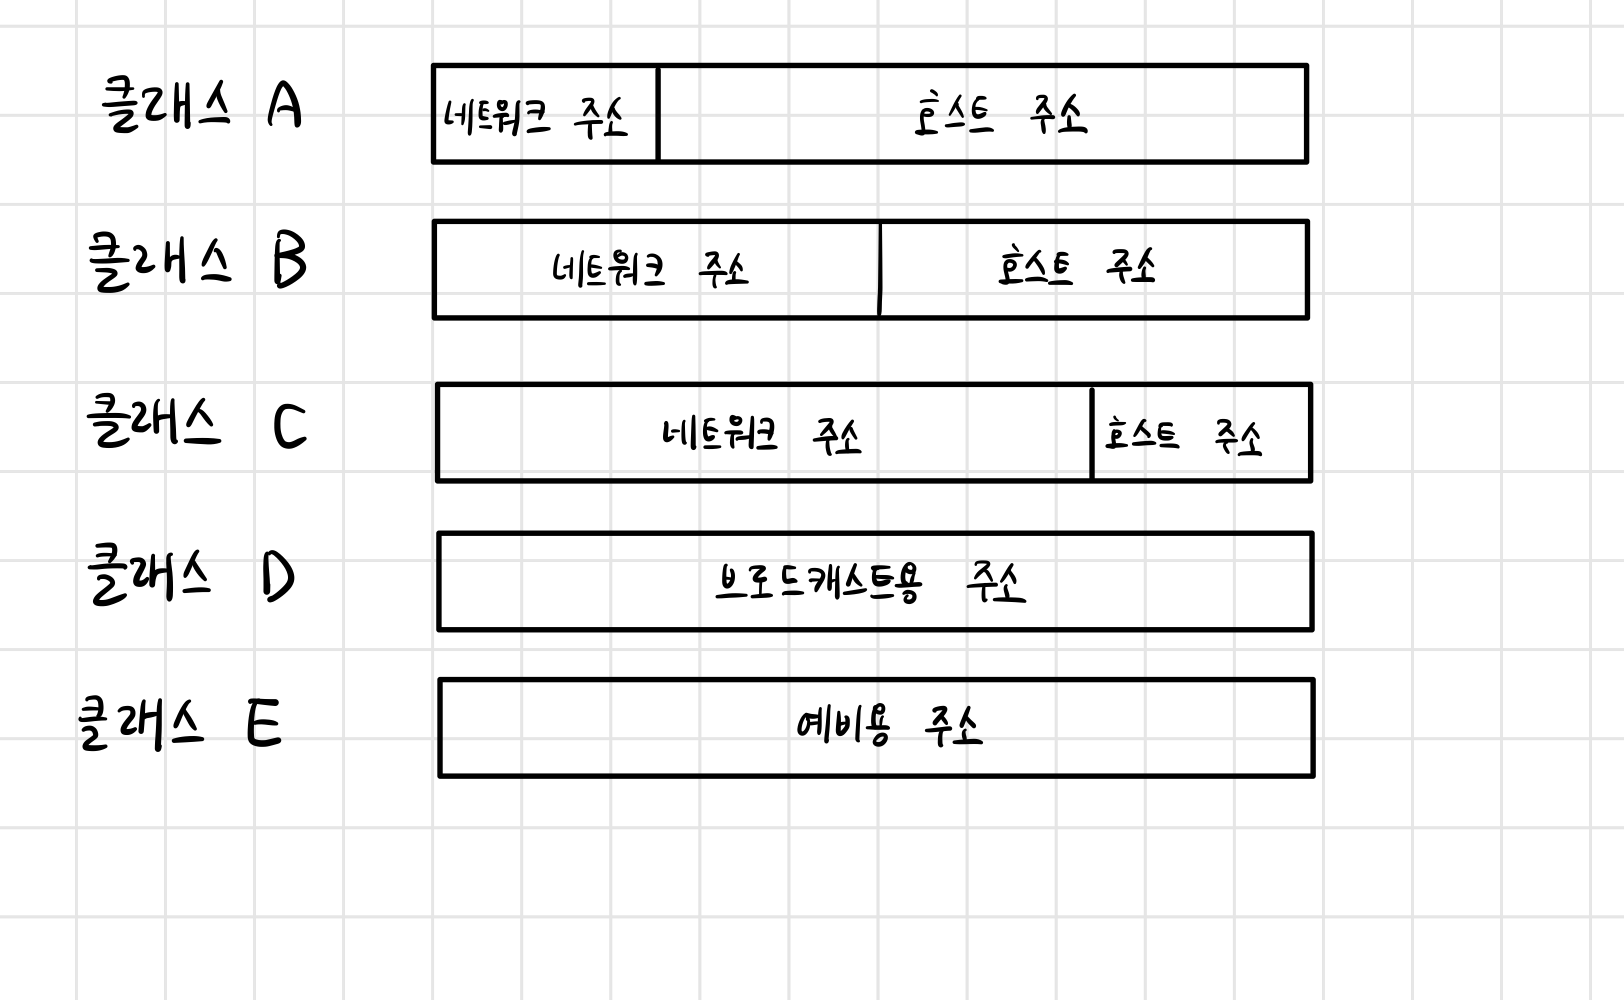 클래스 A 네트워크 주소 호스트 주소
클래스 B 네트워크 주소 호스트 주소
클래스 C 네트워크 주소 호스트 주소
클래스 D 브로드캐스트용 주소
클래스 E 예비용 주소